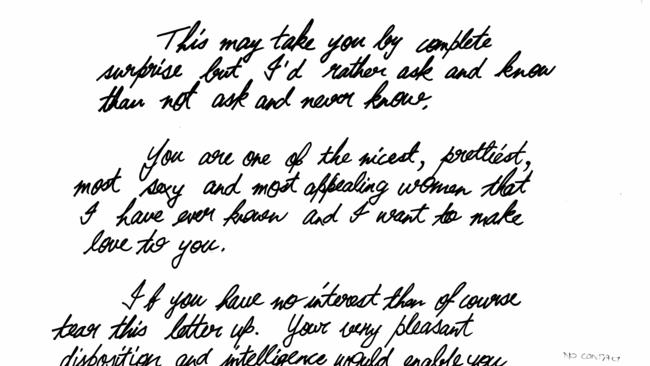 This may take you by complete
surprise but I'd rather ask and know
than not ask and never know.
You are one of the nicest, prettiest,
most sexy and most appealing women that
I have ever known and I want to make
love to you.
If you have no interest than of course
tear this letter up. Your very pleasant
disposition and intelligence would enable you
NO CONTACT